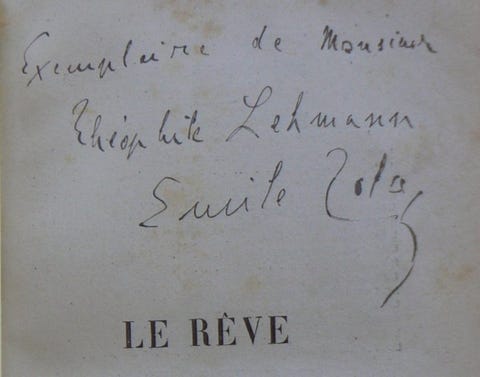 Exemplaire de Monsieur
Théophile Lehmann
Emile Zola
LE RÊVE